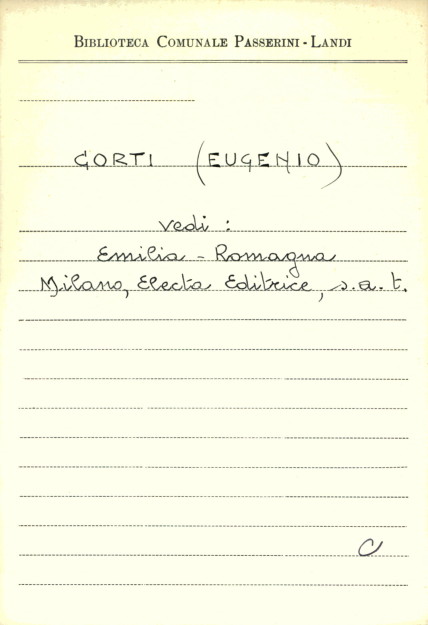 BIBLIOTECA COMUNALE PASSERINI-LANDI
GORTI (EUGENIO)
vedi :
Emilia - Romagna
Milano, Electa Editrice, s.a. t.
C